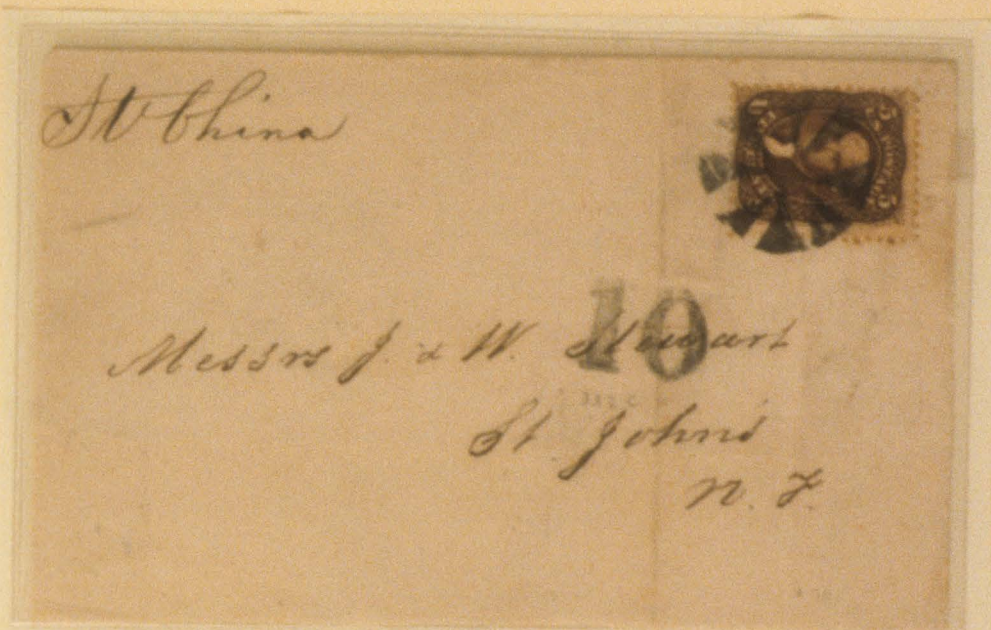 Str China
10
Messrs J. & W. Stewart
St Johns
N. F.
5 5